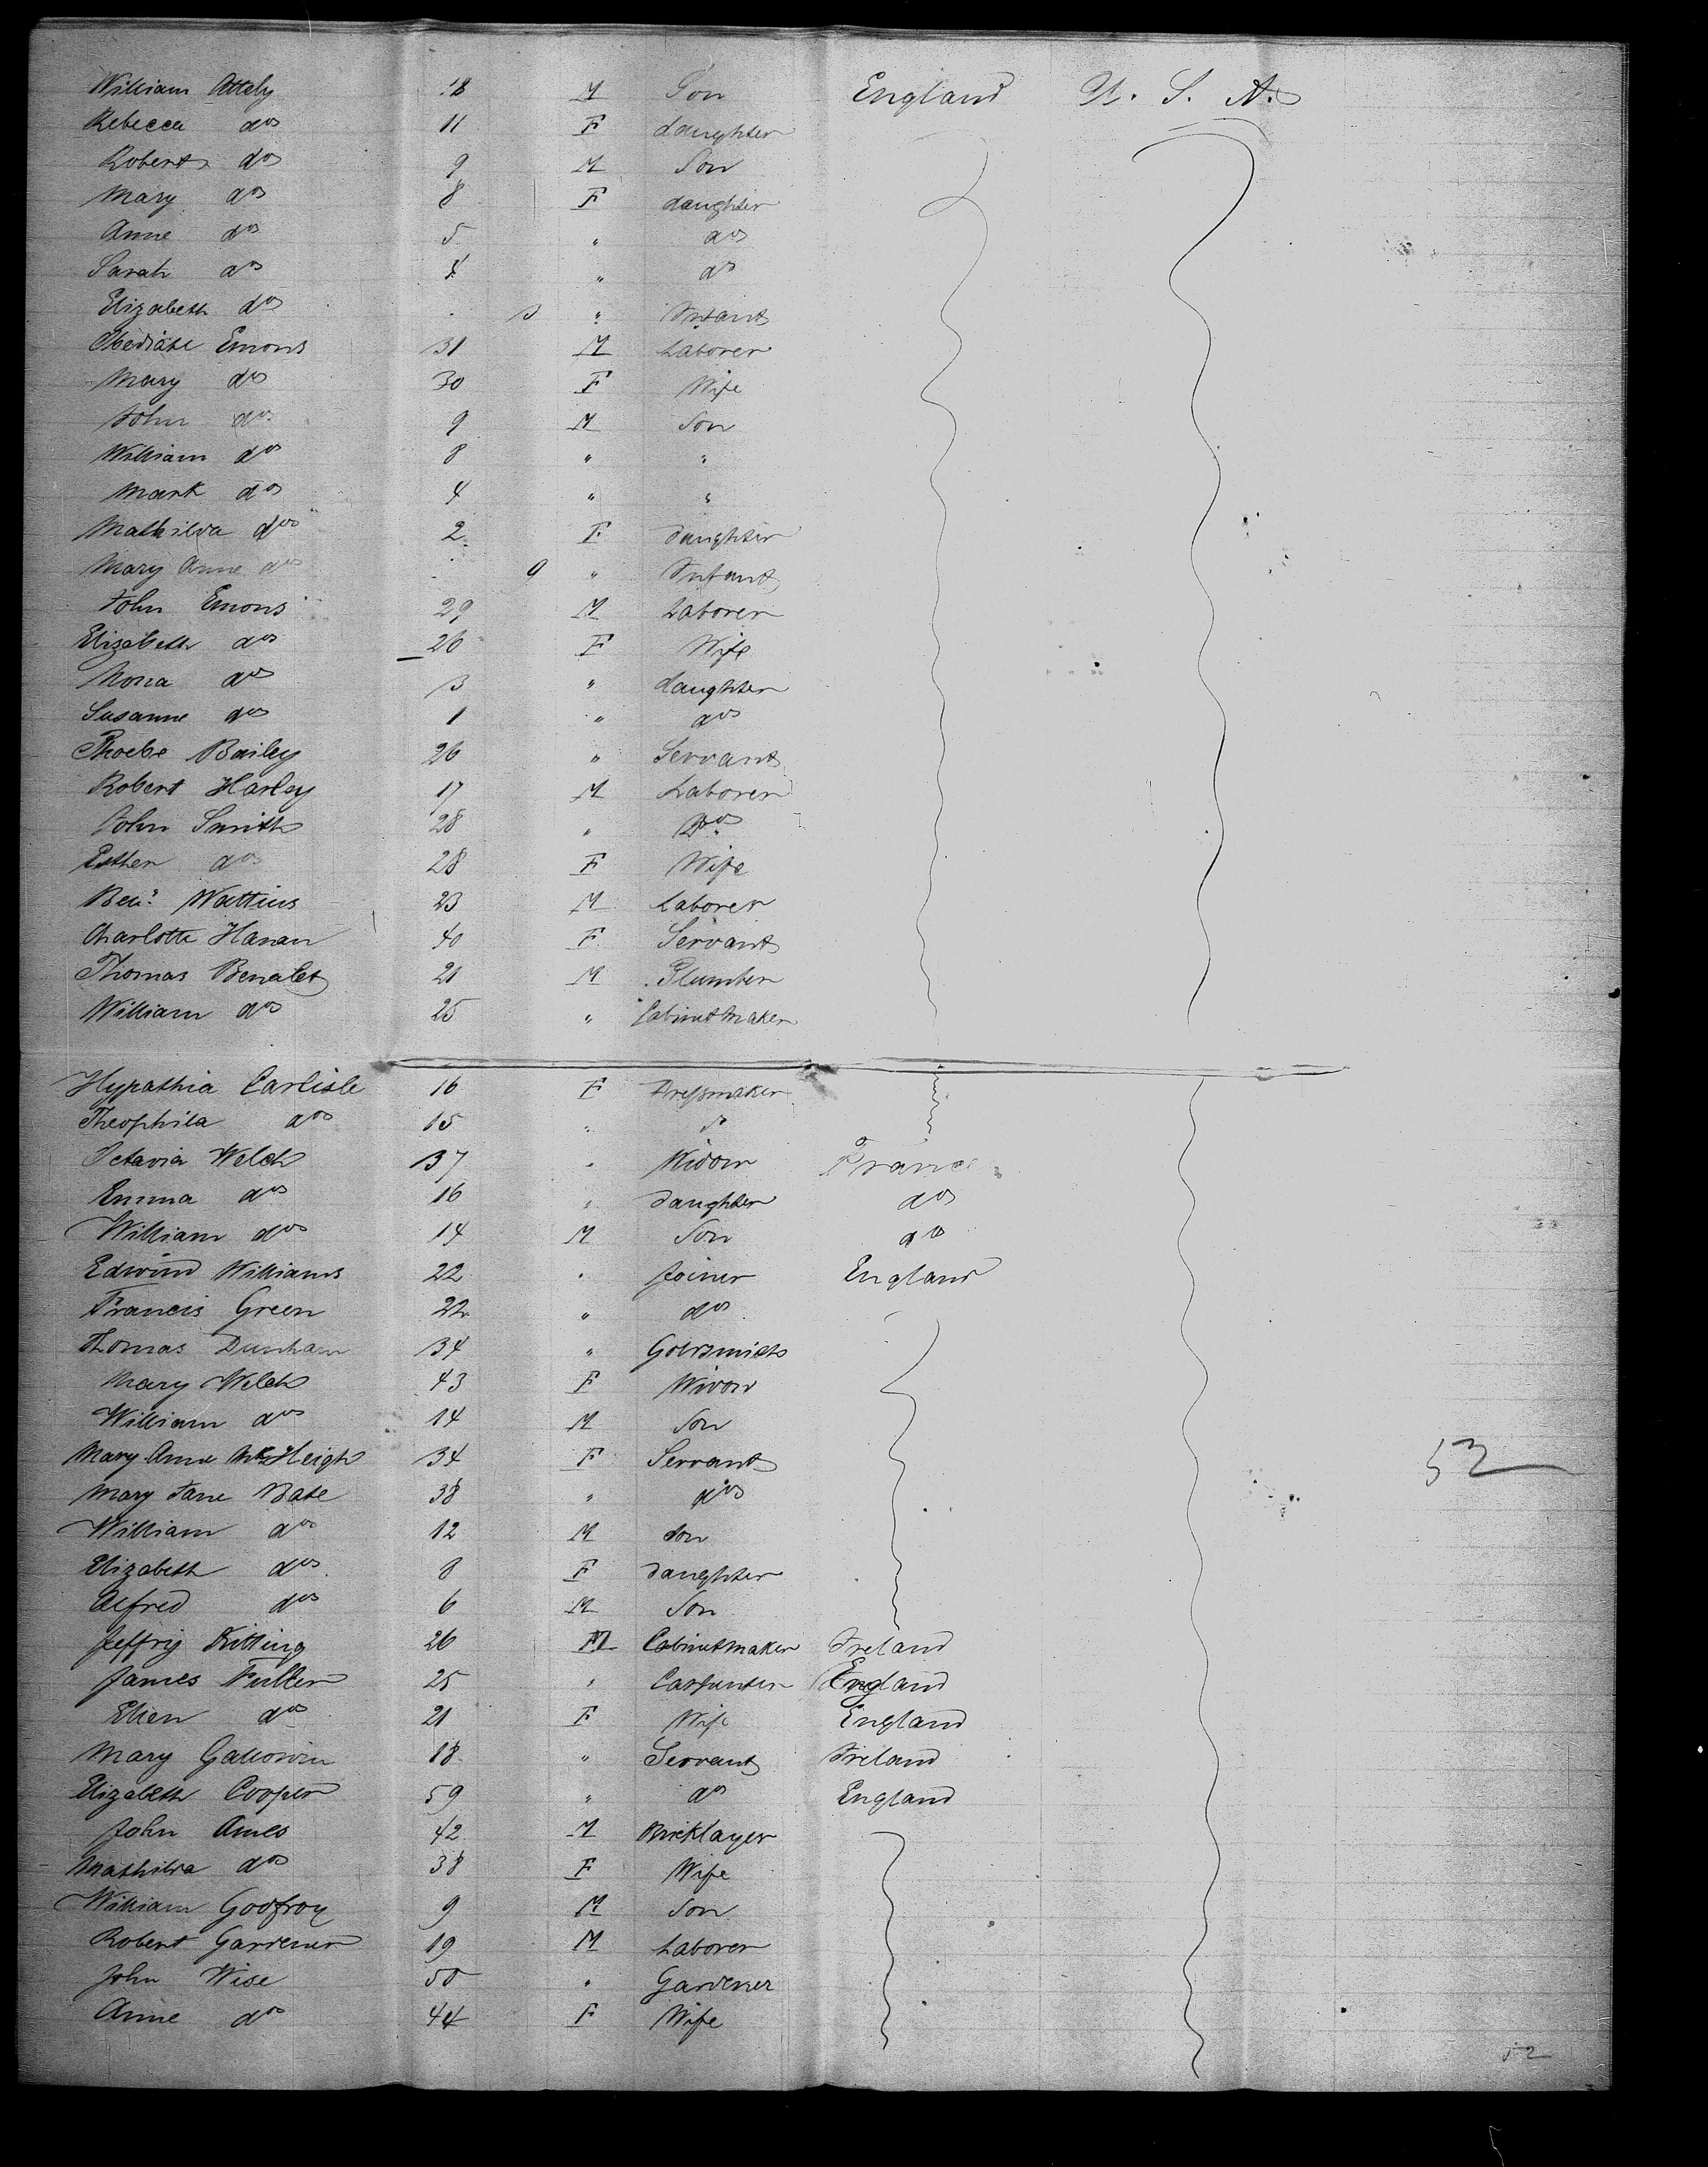 William Attely 12 M Son England U. S. A.
Rebecca do 11 F daughter
Robert do 9 M Son
Mary do 8 F daughter
Anne do 5 " do
Sarah do 4 " do
Elizabeth do 3 " Infant
Emons 31 M Laborer
Mary do 30 F Wife
John do 9 M Son
William do 8 " "
Mark do 4 " "
Mathilda do 2 F daughter
Mary Anne do 9 " Infant
John Emons 29 M Laborer
Elizabeth do 26 F Wife
Nora do 3 " daughter
Susanne do 1 " do
Phoebe Bailey 26 " Servant
Robert Harley 17 M Laborer
John Smith 28 " Do
Esther do 28 F Wife
Watkins 23 M Laborer
Charlotte Hanan 40 F Servant
Thomas Benalet 21 M Plumber
William do 25 " Cabinetmaker
Hypathia Carlisle 16 F Dressmaker
Theophila do 15 " do
Octavia Welch 37 " Widow France
Emma do 16 " daughter do
William do 14 M Son do
Edwind Williams 22 " Joiner England
Francis Green 22 " do
Thomas Dunham 34 " Goldsmith
Mary Welch 43 F Widow
William do 14 M Son
Mary Anne McHeigh 34 F Servant
52
Mary Jane Bate 38 " do
William do 12 M Son
Elizabeth do 8 F daughter
Alfred do 6 M Son
Jeffrij Kitting 26 M Cabinetmaker Ireland
James Fuller 25 " Carpenter England
Ellen do 21 F Wife England
Mary Gallowin 18 " Servant Ireland
Elizabeth Cooper 59 " do England
John Ames 42 M Bricklayer
Mathilda do 38 F Wife
William Godfroy 9 M Son
Robert Gardener 19 M Laborer
John Wise 50 " Gardener
Anne do 44 F Wife
52